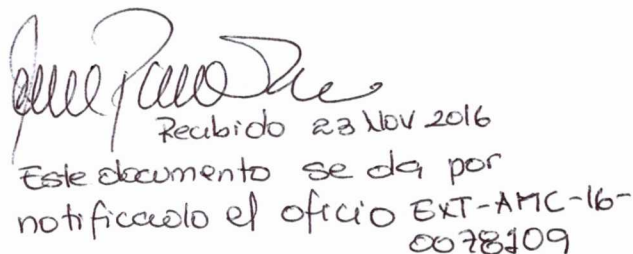 Recibido 23 NOV 2016
Este documento se da por
notificado el oficio EXT-AMC-16-
0078109